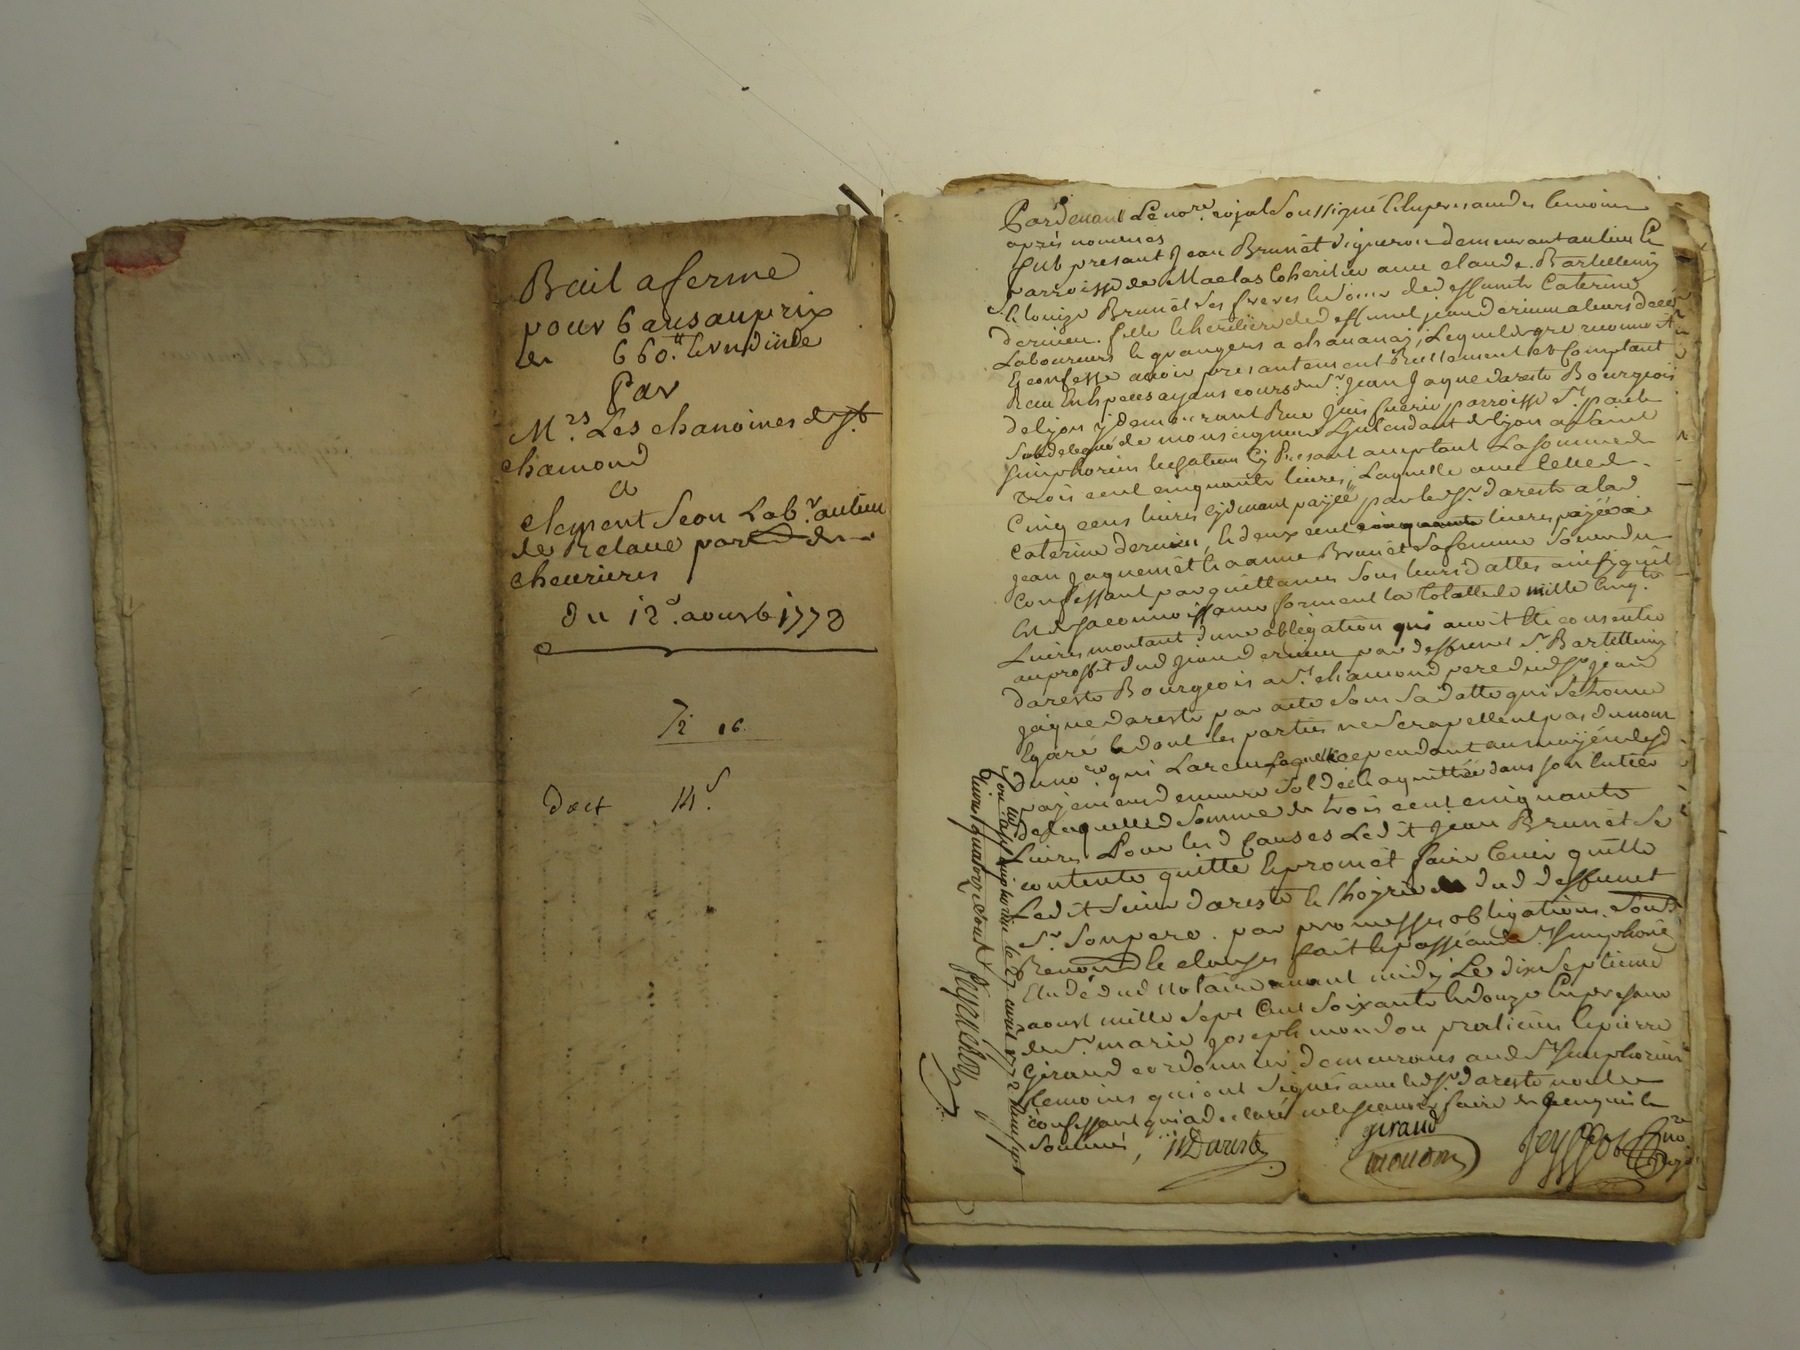 Bail a ferme
pour 6 ans au prix
de 660.ᵗᵗ
Par
M.ʳˢ Les chanoines de Sᵗ
chamond
a
clement Seon Lab.ʳ au lieu
de Relave par de
cheurieres
du 12.ᵉ aoust 1772
72 16
doit 14 ˢ
Pardevant Le noʳᵉ. royal Soussigné et en presance des temoins
apres nommes
fut presant Jean Brunet vigneron demeurant au lieu et
parroisse de Maclas coheritier avec claude Bartellemy
et louize Brunet ses freres et soeur de deffunte Caterine
dervieu fille et heritiere de deffunt jean dervieu
Laboureurs et grangers a chavanay, Lequel de gre reconnoit
Et confesse avoir presantement Reellement et Comptant
Receu En Especes ayans cours du Sʳ. Jean Jaque dareste Bourgeois
de lyon y demeurant Rue parroisse Sᵗ. paul
Subdelegué de monseigneur Lintendant de lyon a Saint
Simphorien Cy Presant acceptant La somme de
trois cent cinquante livres, Laquelle avec celle de
Cinq cens livres cydevant payée par led Sʳ. dareste a lad
Caterine dervieu, et deux cent livres payée a
jean jaquemet et anne Brunet Sa femme Soeur du
Confessant par quittances Sous leurs dattes ainsi quil
Est de Sa connoissance forment la totalle de mille Cinq
Livres montant dune obligation qui avoit ete consentie
au proffit dud jean dervieu par deffunt Sʳ Bartellemy
dareste Bourgeois a Sᵗ. chamond pere dud Sʳ jean
jaque dareste par acte Sous Sa datte qui Se trouve
Egaré et dont les parties ne Se rapellent pas du nom
du noʳᵉ qui La receu Laquelle cependant au moyen desd
payemens demeure Soldée et aquittée dans Son Entier
de laquelle d somme de trois cent cinquante
Livres Pour les d causes Led it jean Brunet Se
contente quitte et promet faire tenir quitte
Ledit Sieur dareste et lhoyrie dud deffunt
Sʳ. Son pere. par promesses obligations. Soub
Renon et clauses fait et passé aud Sᵗ Simphorien
Etude dud Notaire avant midy Le dix Septieme
aoust mille Sept Cent Soixante et douze En presance
de Sʳ. marie joseph mondon praticien et pierre
Giraud cordonnier demeurans aud Sᵗ Simphorien
temoins qui ont Signés avec led Sʳ dareste non le
confessant qui a declaré ne Scavoir faire de ce enquis et
Sommé,
JJDareste
giraud
mondon
noʳᵉ
Con.ˡˡᵉ a Sᵗ Simphorien le 27 aout 1772 Reçu Sept
livres quatorze Sous